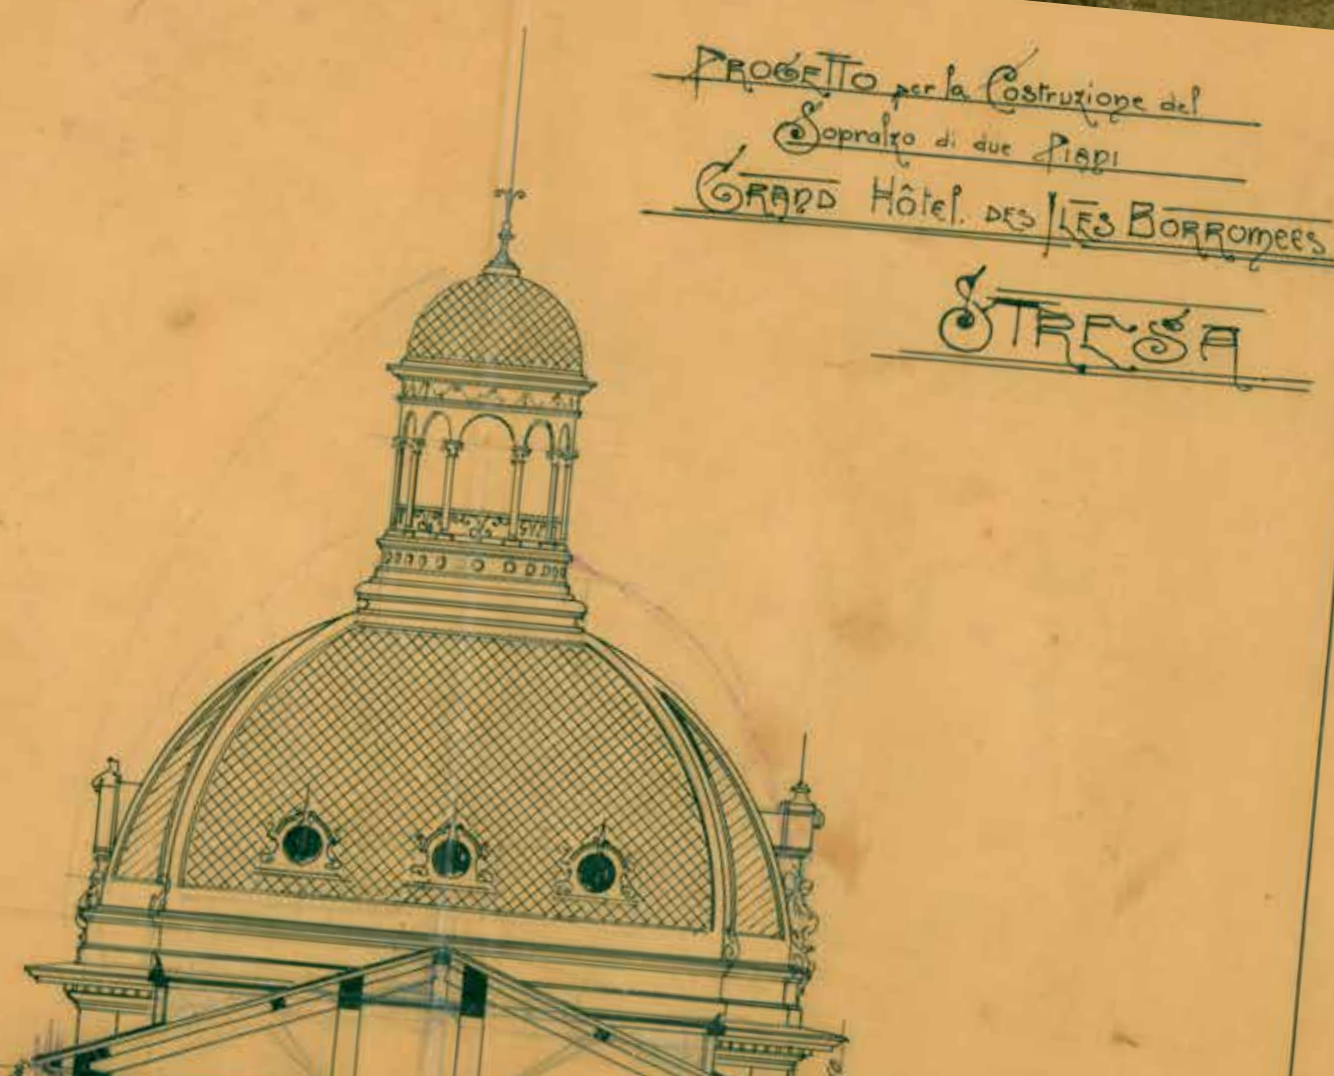 PROGETTO per la Costruzione del
Sopralzo di due Piani
GRAND Hôtel. DES ILES BORROMEES
STRESA